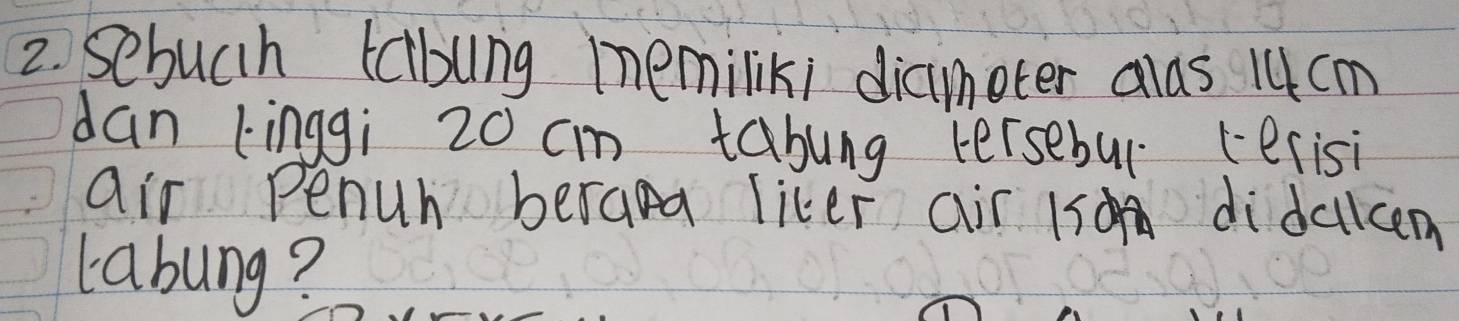 2. Sebuah tabung memiliki diameter alas 14 cm
dan tinggi 20 cm tabung tersebut terisi
air penuh berapa liter air didalam
tabung?